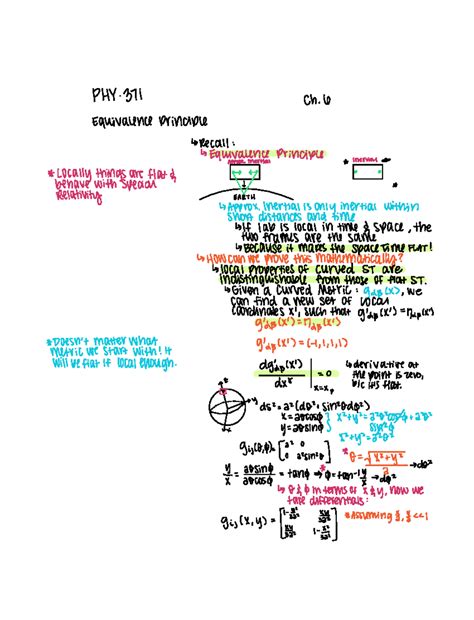 PHY·371
Ch. 6
Equivalence Principle
↳ Recall:
↳ Equivalence Principle
Approx. Inertial
Inertial
EARTH
* Locally things are flat &
behave with Special
Relativity
↳ Approx. Inertial is only inertial within
short distances and time
↳ If lab is local in time & space, the
two frames are the same
↳ Because it makes the space time FLAT!
↳ How can we prove this mathematically?
↳ local properties of curved ST are
indistinguishable from those of flat ST.
↳ Given a curved metric: gαβ(x), we
can find a new set of local
coordinates x', such that g'αβ(x') = ηαβ(x')
g'αβ(x') = ηαβ(x')
* Doesn't matter what
metric we start with! It
will be flat if local enough.
g'αβ(x') = (-1,1,1,1)
dg'αβ(x')/dx^γ | x=xp = 0
↳ derivative at
the point is zero,
b/c it's flat.
ds² = a²(dθ² + sin²θdφ²)
x = aθcosφ
y = aθsinφ
x²+y² = a²θ²
gij(θ,φ) = [a² 0
0 a²sin²θ]
* θ = √(x²+y²)/a → dθ²
y/x = aθsinφ/aθcosφ = tanφ ⇒ φ = tan⁻¹ y/x → dφ²
↳ θ & φ in terms of x & y, now we
take differentials:
* Assuming